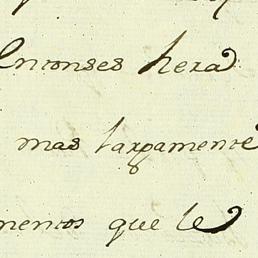 Entonses hera
mas largamente
mentos que le